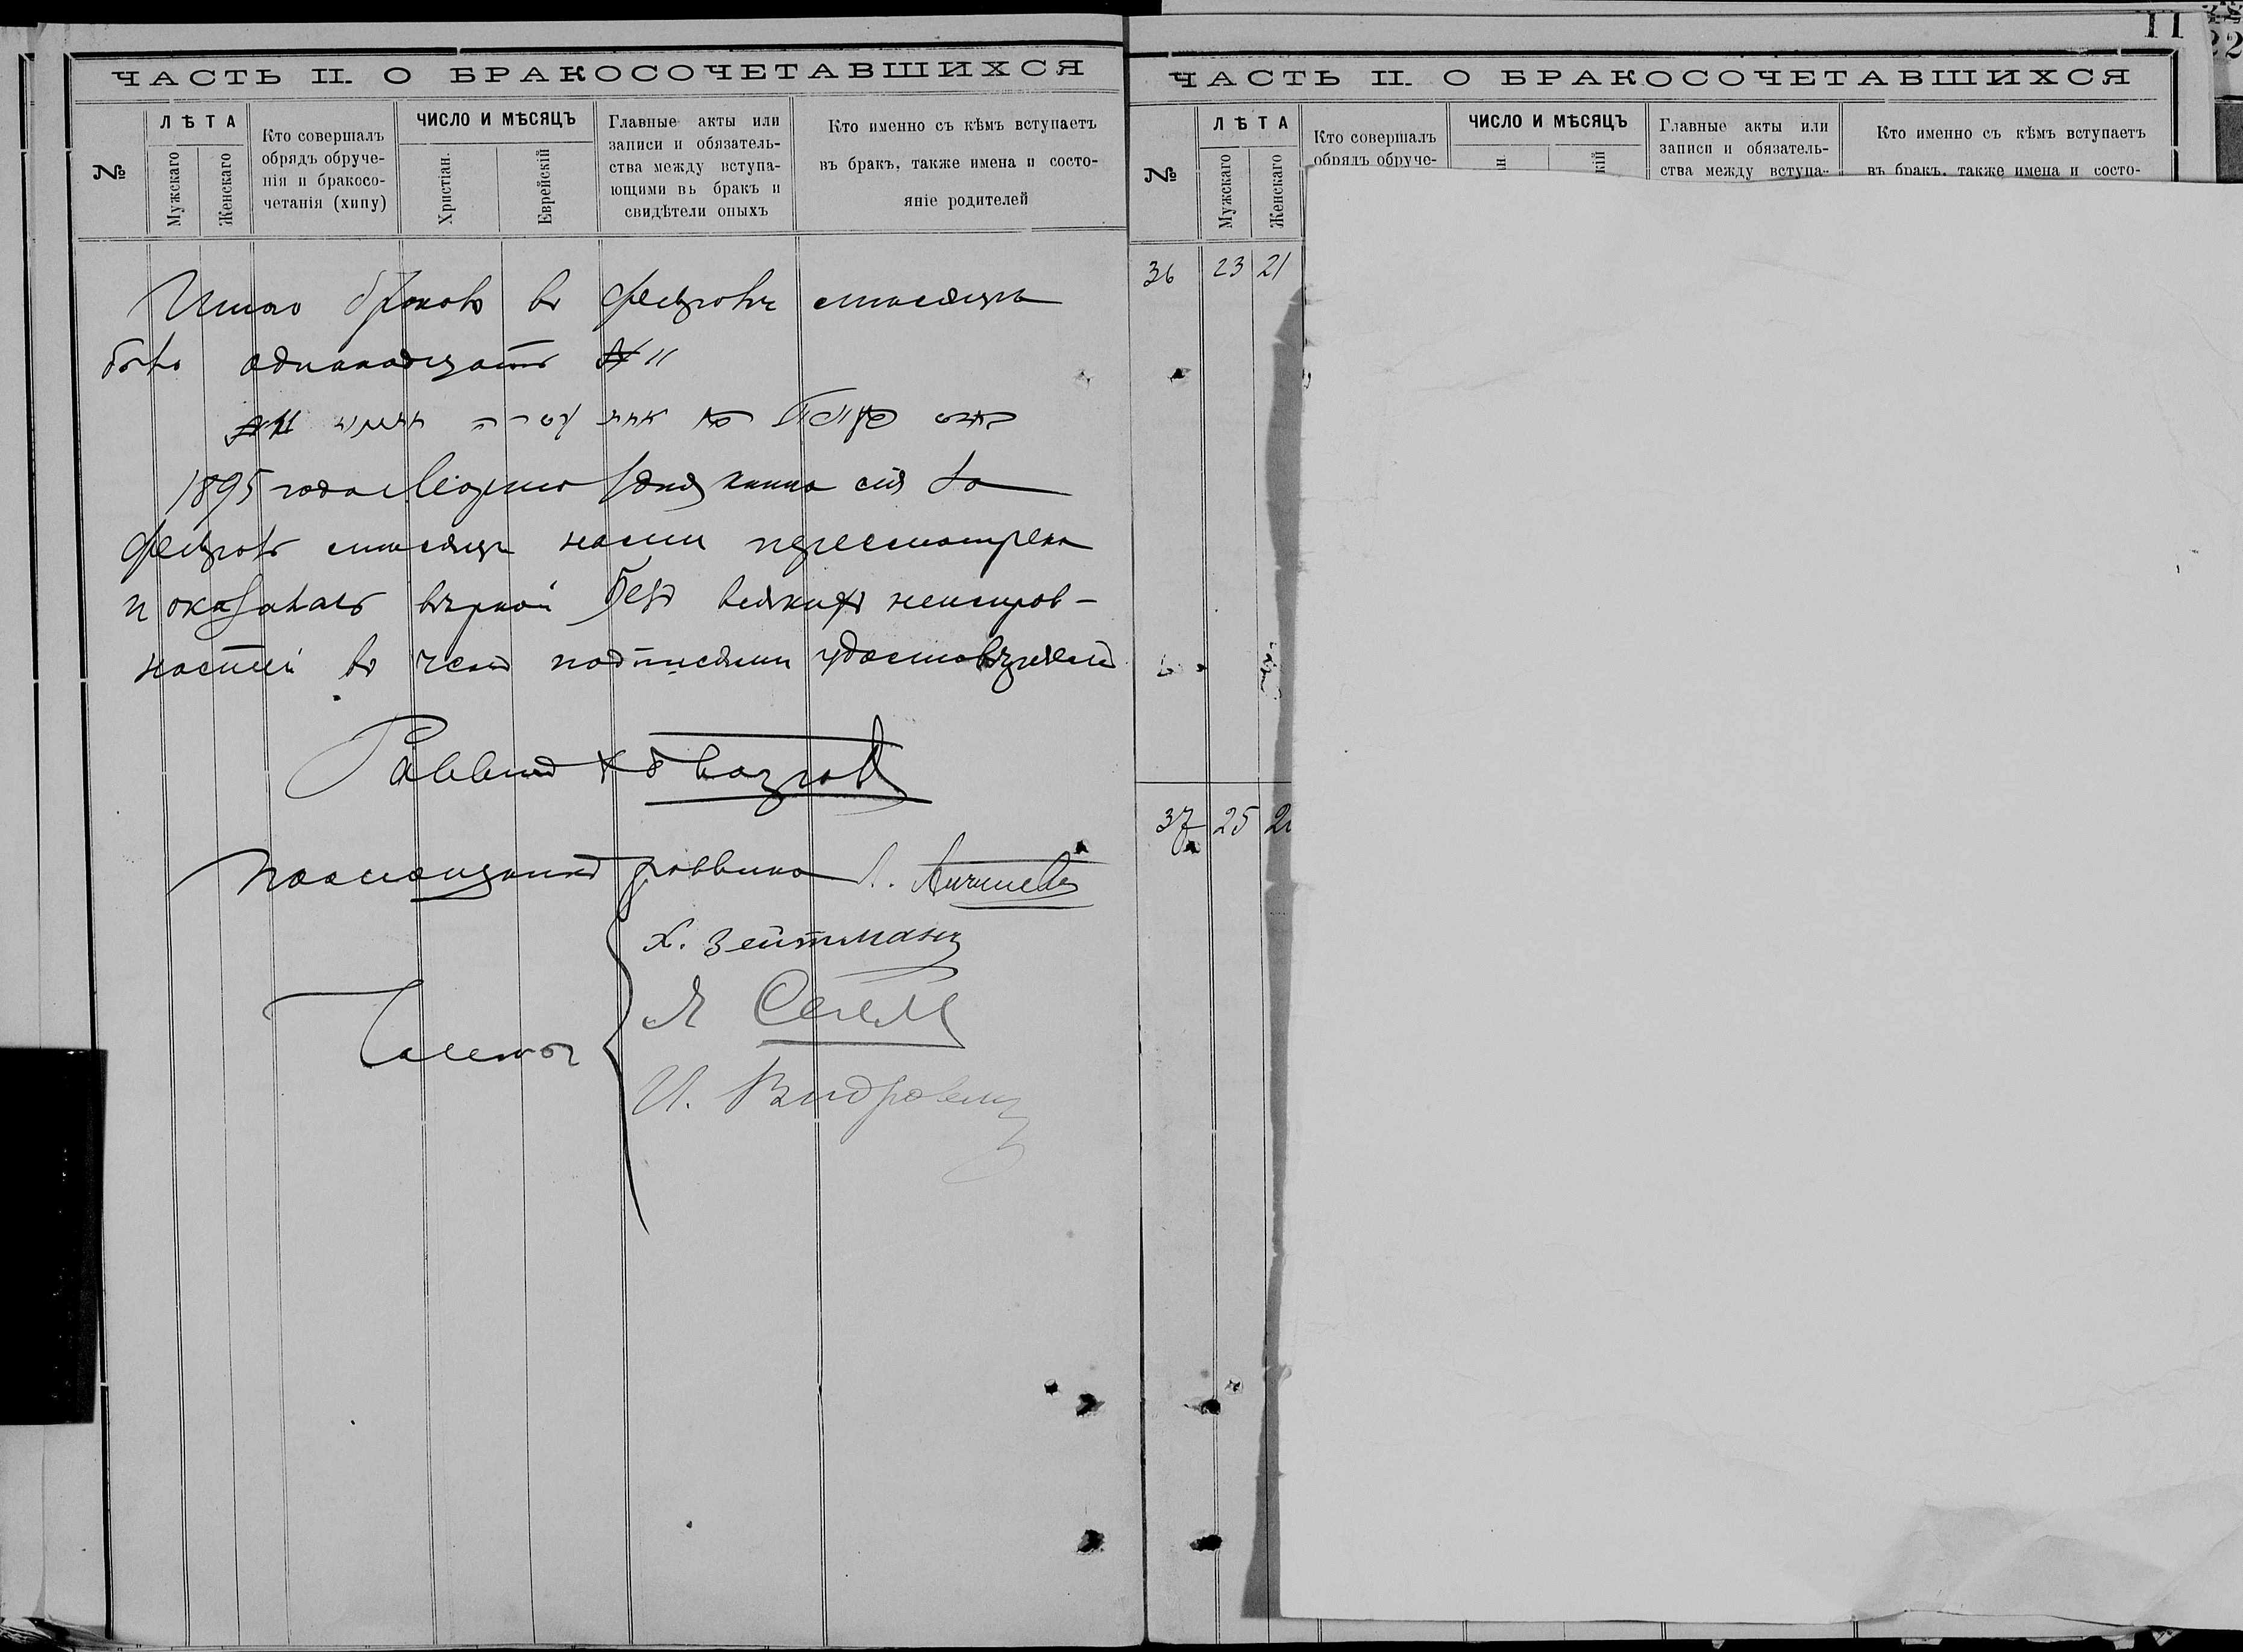 ЧАСТЬ II. О БРАКОСОЧЕТАВШИХСЯ
№
ЛѢТА
Мужскаго
Женскаго
Кто совершалъ
обрядъ обруче-
нія и бракосо-
четанія (хипу)
ЧИСЛО И МѢСЯЦЪ
Христіан.
Еврейскій
Главные акты или
записи и обязатель-
ства между вступа-
ющими въ бракъ и
свидѣтели оныхъ
Кто именно съ кѣмъ вступаетъ
въ бракъ, также имена и состо-
яніе родителей
Итого браковъ въ Февралѣ мѣсяцѣ
было одинадцать № 11
1895 года Марта 1 дня книга сія за
Февраль мѣсяцъ нами пересмотрена
и оказалась вѣрной безъ всякихъ неисправ-
ностей въ чемъ подписями удостовѣряемъ
Раввинъ
Помощникъ раввина
Х. Зейтманъ
Члены
11
ЧАСТЬ II. О БРАКОСОЧЕТАВШИХСЯ
№
ЛѢТА
Мужскаго
Женскаго
Кто совершалъ
обрядъ обруче-
ЧИСЛО И МѢСЯЦЪ
Главные акты или
записи и обязатель-
ства между вступа-
Кто именно съ кѣмъ вступаетъ
въ бракъ, также имена и состо-
36 23 21
37 25